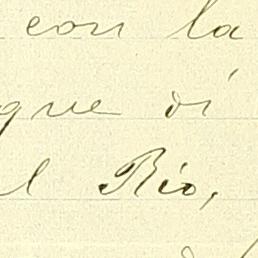 con la
que di
el Rio,